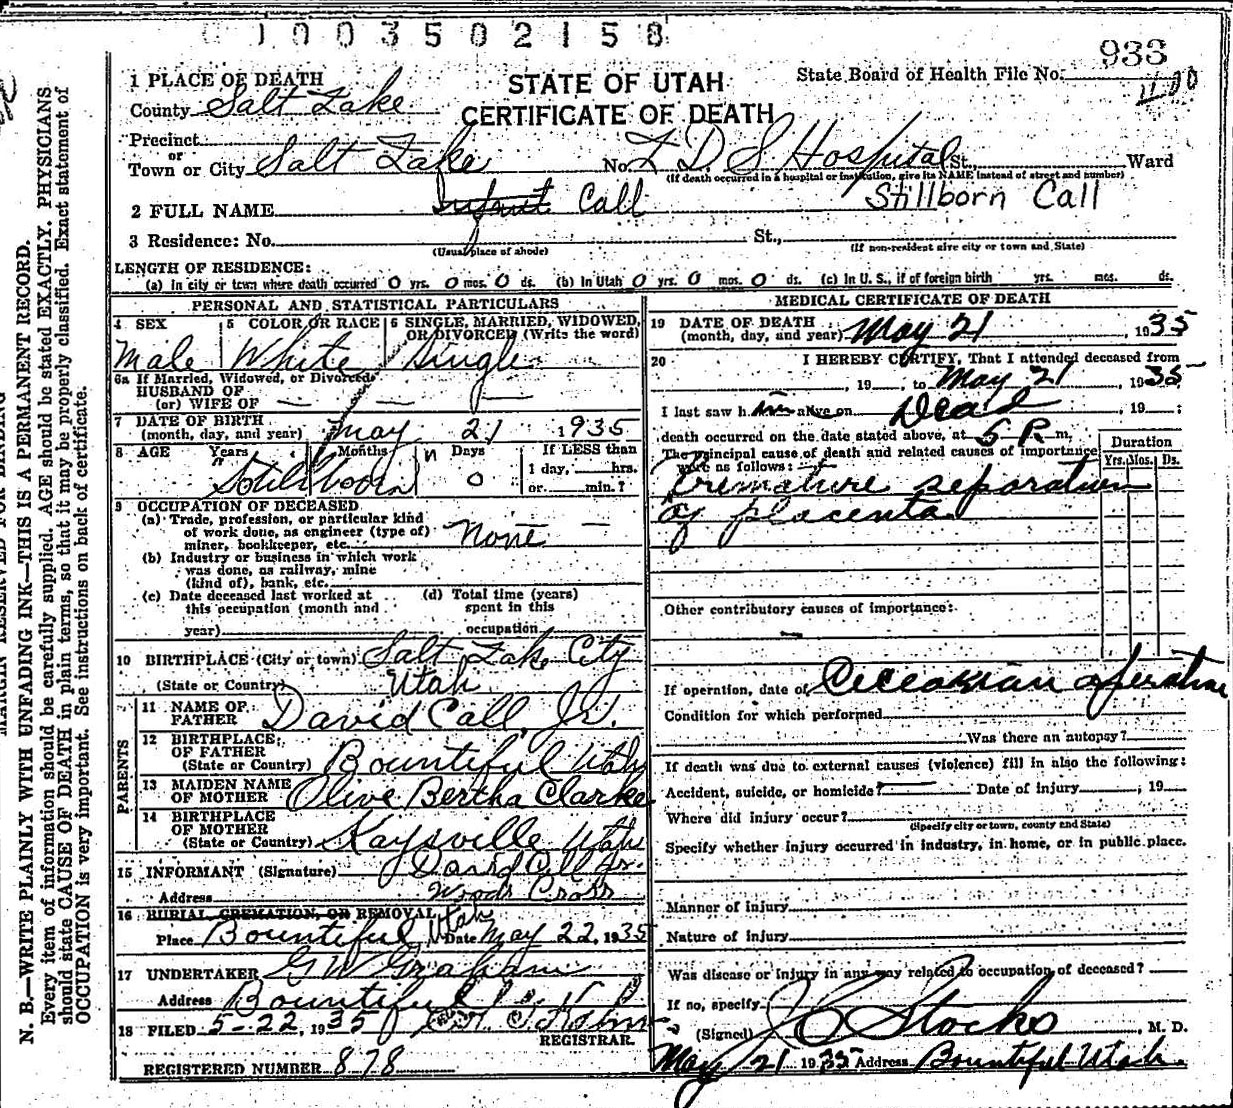 1003502158
933
1 PLACE OF DEATH
STATE OF UTAH
State Board of Health File No.
County Salt Lake
CERTIFICATE OF DEATH
Precinct
or
Town or City Salt Lake No. L D S Hospital St., Ward
(If death occurred in a hospital or institution, give its NAME instead of street and number)
2 FULL NAME Infant Call Stillborn Call
3 Residence: No. St.,
(Usual place of abode) (If non-resident give city or town and State)
LENGTH OF RESIDENCE:
(a) In city or town where death occurred 0 yrs. 0 mos. 0 ds. (b) In Utah 0 yrs. 0 mos. 0 ds. (c) In U. S., if of foreign birth yrs. mos. ds.
PERSONAL AND STATISTICAL PARTICULARS
4 SEX 5 COLOR OR RACE 6 SINGLE, MARRIED, WIDOWED, OR DIVORCED (Write the word)
Male White Single
6a If Married, Widowed, or Divorced
HUSBAND OF
(or) WIFE OF
7 DATE OF BIRTH
(month, day, and year) May 21 1935
8 AGE Years Months Days If LESS than
1 day, hrs.
or min.?
Stillborn 0
9 OCCUPATION OF DECEASED
(a) Trade, profession, or particular kind
of work done, as engineer (type of)
miner, bookkeeper, etc. None
(b) Industry or business in which work
was done, as railway, mine
(kind of), bank, etc.
(c) Date deceased last worked at
this occupation (month and
year)
(d) Total time (years)
spent in this
occupation
10 BIRTHPLACE (City or town) Salt Lake City
(State or Country) Utah
PARENTS
11 NAME OF
FATHER David Call, Jr.
12 BIRTHPLACE
OF FATHER
(State or Country) Bountiful Utah
13 MAIDEN NAME
OF MOTHER Olive Bertha Clarke
14 BIRTHPLACE
OF MOTHER
(State or Country) Kaysville Utah
15 INFORMANT (Signature) David Call Jr.
Address Woods Cross
Utah
16 BURIAL, CREMATION, OR REMOVAL
Place Bountiful, Utah Date May 22, 1935
17 UNDERTAKER G W Graham
Address Bountiful
18 FILED 5-22, 1935
REGISTRAR.
REGISTERED NUMBER 878
MEDICAL CERTIFICATE OF DEATH
19 DATE OF DEATH
(month, day, and year) May 21 1935
20 I HEREBY CERTIFY, That I attended deceased from
, 19 , to May 21 , 1935
I last saw him alive on Dead , 19 ;
death occurred on the date stated above, at 5 P. m.
The principal cause of death and related causes of importance
were as follows:
Duration
Yrs. Mos. Ds.
Premature separation
of placenta
Other contributory causes of importance:
If operation, date of Ceceasrian operation
Condition for which performed
Was there an autopsy?
If death was due to external causes (violence) fill in also the following:
Accident, suicide, or homicide? Date of injury , 19
Where did injury occur?
(Specify city or town, county and State)
Specify whether injury occurred in industry, in home, or in public place.
Manner of injury
Nature of injury
Was disease or injury in any way related to occupation of deceased?
If no, specify
(Signed) J C Stocks , M. D.
May 21 1935 Address Bountiful Utah.
N. B.—WRITE PLAINLY WITH UNFADING INK—THIS IS A PERMANENT RECORD.
Every item of information should be carefully supplied. AGE should be stated EXACTLY. PHYSICIANS
should state CAUSE OF DEATH in plain terms, so that it may be properly classified. Exact statement of
OCCUPATION is very important. See instructions on back of certificate.